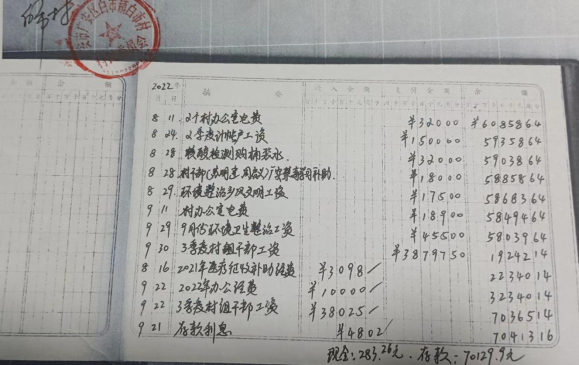 2022年
月 日 摘要 收入金额 支付金额 余额
8 11. 2个村办公室电费 ¥32000 ¥6085864
8 24. 2季度计生户工资 ¥150000 5935864
8 28 核酸检测购桶装水. ¥32000 5903864
8 28 补助. ¥18000 5885864
8 29. 环境整治乡风文明工资 ¥17500 5868364
9 11 村办公室电费 ¥18900 5849464
9 29 9月份环境卫生整治工资 ¥45500 5803964
9 30 3季度村组干部工资 ¥3879750 1924214
8 16 2021年医疗征收补助经费 ¥3098/ 2234014
9 22 2022年办公经费 ¥10000/ 3234014
9 22 3季度村组干部工资 ¥38025/ 7036514
9 21 存款利息 ¥4802/ 7041316
现金: 283.26元. 存款: 70129.9元